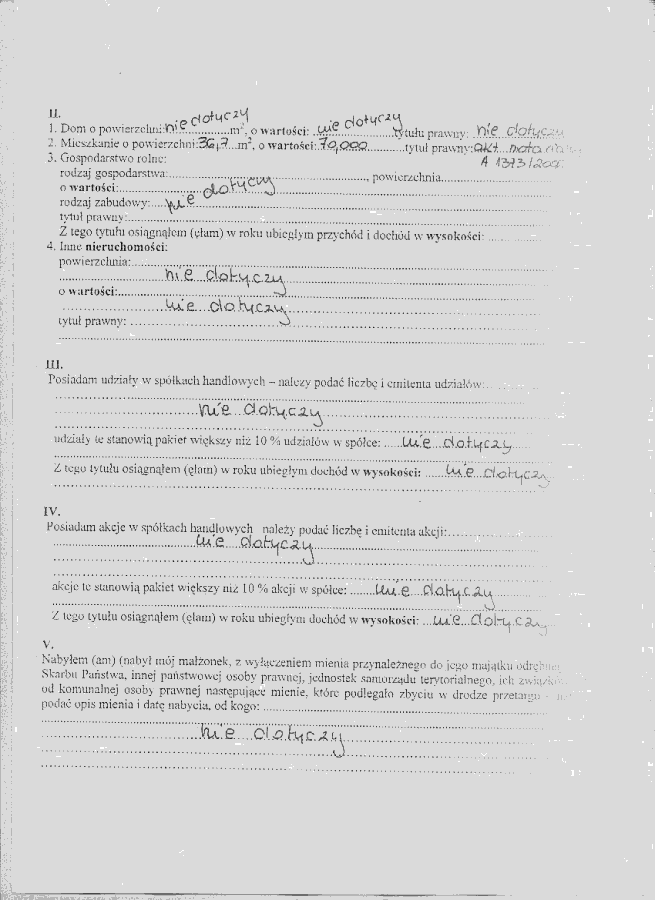 II.
1. Dom o powierzchni: nie dotyczy m², o wartości: nie dotyczy tytułu prawny: nie dotyczy
2. Mieszkanie o powierzchni: 36,7 m², o wartości: 70,000 tytuł prawny: akt
3. Gospodarstwo rolne: A 1373/
rodzaj gospodarstwa: , powierzchnia
o wartości: nie dotyczy
rodzaj zabudowy:
tytuł prawny:
Z tego tytułu osiągnąłem (ęłam) w roku ubiegłym przychód i dochód w wysokości:
4. Inne nieruchomości:
powierzchnia:
nie dotyczy
o wartości:
nie dotyczy
tytuł prawny:
III.
Posiadam udziały w spółkach handlowych – należy podać liczbę i emitenta udziałów:
nie dotyczy
udziały te stanowią pakiet większy niż 10 % udziałów w spółce: nie dotyczy
Z tego tytułu osiągnąłem (ęłam) w roku ubiegłym dochód w wysokości: nie dotyczy
IV.
Posiadam akcje w spółkach handlowych należy podać liczbę i emitenta akcji:
nie dotyczy
akcje te stanowią pakiet większy niż 10 % akcji w spółce: nie dotyczy
Z tego tytułu osiągnąłem (ęłam) w roku ubiegłym dochód w wysokości: nie dotyczy
V.
Nabyłem (am) (nabył mój małżonek, z wyłączeniem mienia przynależnego do jego majątku
Skarbu Państwa, innej państwowej osoby prawnej, jednostek samorządu terytorialnego, ich
od komunalnej osoby prawnej następujące mienie, które podlegało zbyciu w drodze przetargu -
podać opis mienia i datę nabycia, od kogo:
nie dotyczy